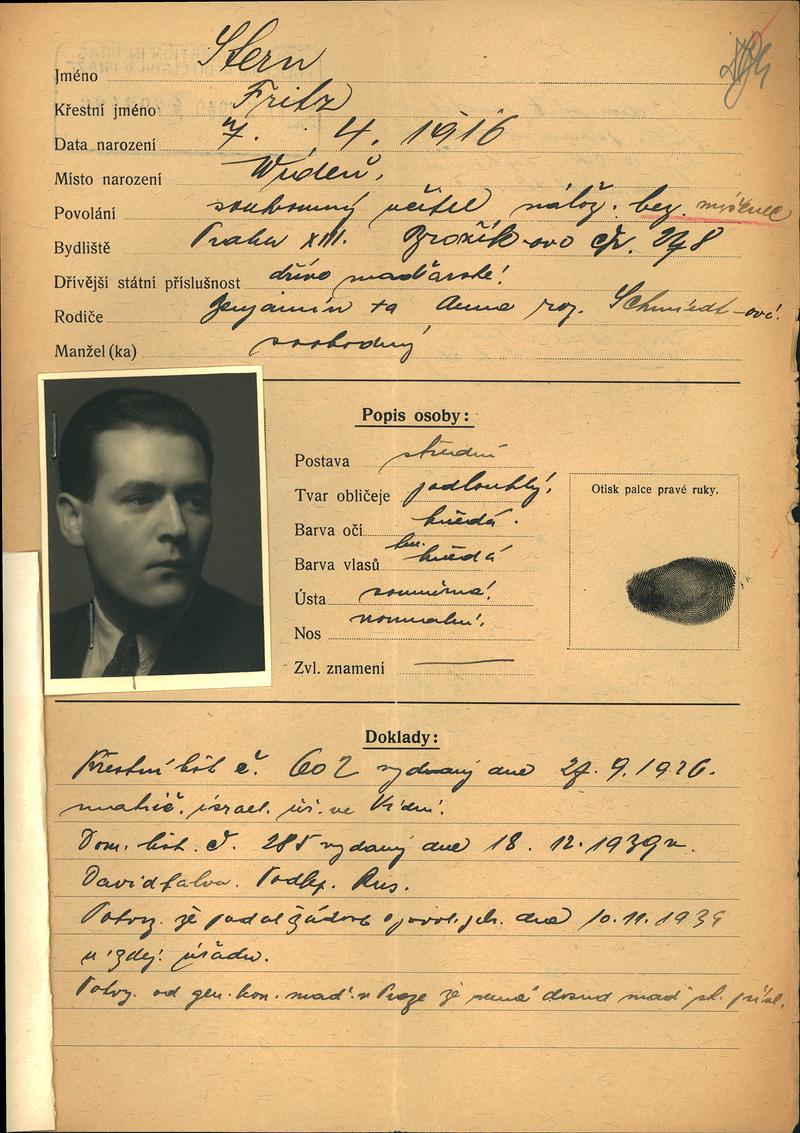 Jméno Stern
Křestní jméno Fritz
Data narození 7. 4. 1916
Místo narození Wídeň.
Povolání soukromný učitel nábož. bez
Bydliště Praha XIII. Brožík-ova čp. 298
Dřívější státní příslušnost dřívo maďarské!
Rodiče Benjamin +a Anna roz. Schmiedt-ová.
Manžel (ka) svobodný
Popis osoby:
Postava střední
Tvar obličeje podlouhlý.
Barva očí hnědá.
Barva vlasů hnědá
Ústa souměrná.
Nos normalní.
Zvl. znamení —
Otisk palce pravé ruky.
Doklady:
Křestní list č. 602 vydaný dne 27. 9. 1926.
matrič. israel. úř. ve Vídni.
Dom. list. č. 285 vydaný dne 18. 12. 1939 v
Davidfalva. Podkp. Rus.
Potvrz. že podal žádost o povol. pob. dne 10. 11. 1939
u zdej. úřadu.
Potvrz. od gen. kon. maď. v Praze že nemá dosud maď. st. přísl.